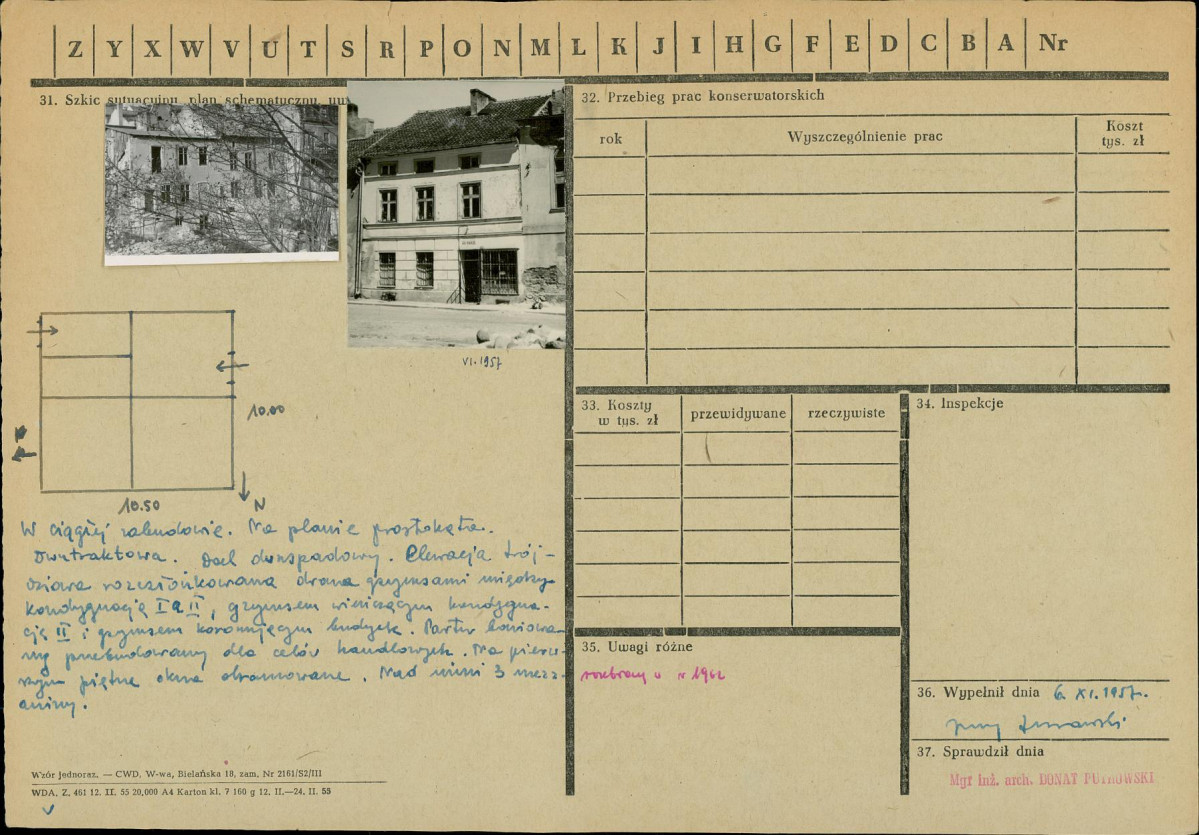 Z Y X W V U T S R P O N M L K J I H G F E D C B A Nr
31. Szkic sytuacyjny, plan schematyczny,
VI.1957
10.00
10.50
N
W ciągłej zabudowie. Na planie prostokąta.
Dwutraktowa. Dach dwuspadowy. Elewacja trój-
osiowa rozczłonkowana dwoma gzymsami między
kondygnacją I a II, gzymsem wieńczącym kondygna-
cję II i gzymsem koronującym budynek. Parter boniowa-
ny przebudowany dla celów handlowych. Na pierw-
szym piętrze okna obramowane. Nad nimi 3 mezz-
aniny.
Wzór jednoraz. — CWD, W-wa, Bielańska 18, zam. Nr 2161/S2/III
WDA. Z. 461 12. II. 55 20,000 A4 Karton kl. 7 160 g 12. II.—24. II. 55
32. Przebieg prac konserwatorskich
rok
Wyszczególnienie prac
Koszt
tys. zł
33. Koszty
w tys. zł
przewidywane
rzeczywiste
34. Inspekcje
35. Uwagi różne
rozebrany w r 1962
36. Wypełnił dnia 6. XI. 1957.
37. Sprawdził dnia
Mgr inż. arch. DONAT PUTKOWSKI